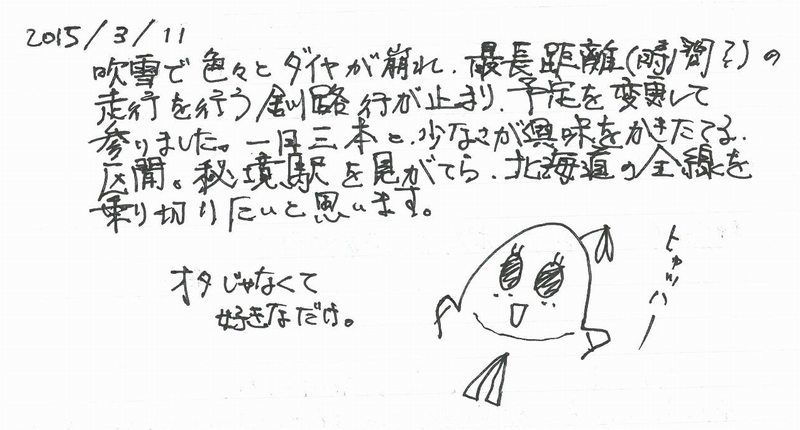 2015/3/11
吹雪で色々とダイヤが崩れ、最長距離(時間も)の
走行を行う釧路行が止まり、予定を変更して
参りました。一日三本と、少なさが興味をかきたてる、
区間。秘境駅を見がてら、北海道の全線を
乗り切りたいと思います。
オタじゃなくて
好きなだけ。
トゥッハー